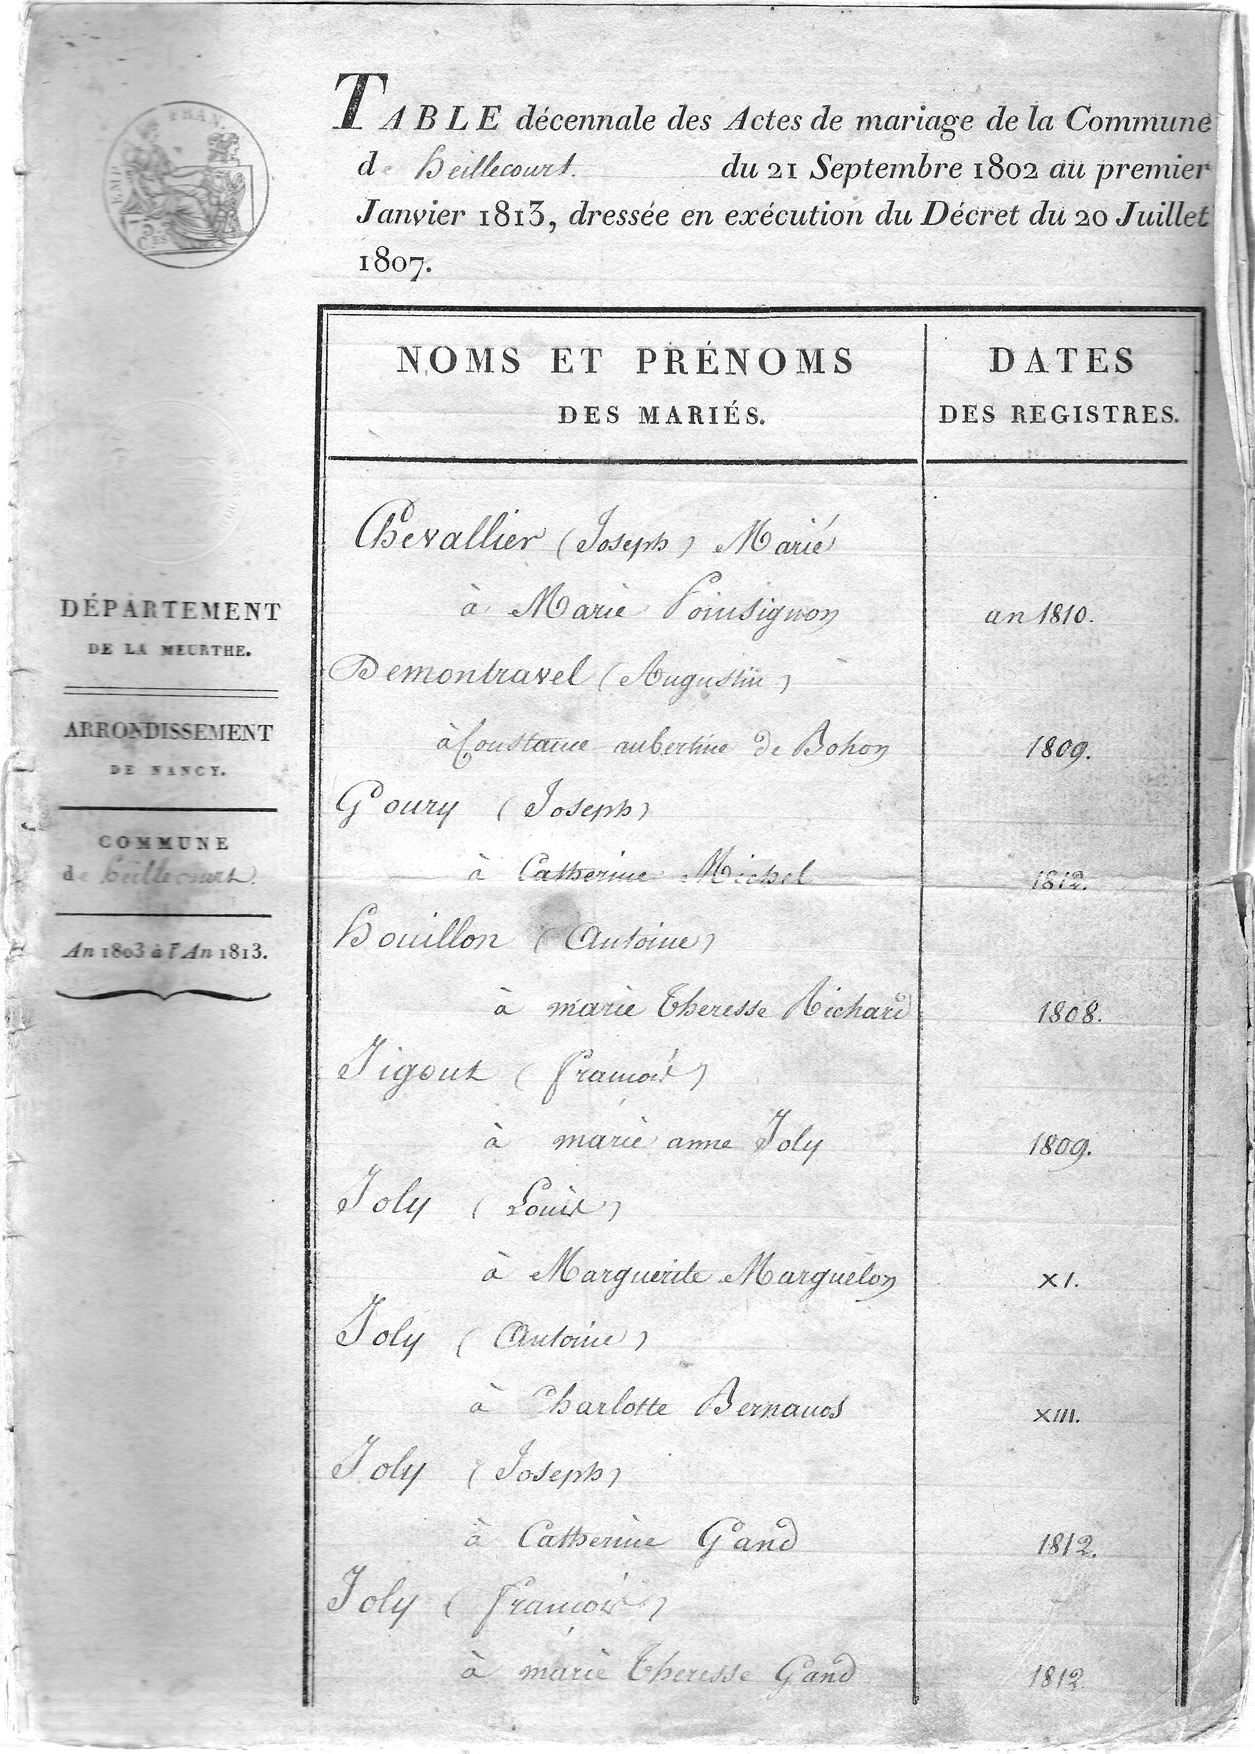 EMP. FRAN.
75
Ces
TABLE décennale des Actes de mariage de la Commune
de heillecourt. du 21 Septembre 1802 au premier
Janvier 1813, dressée en exécution du Décret du 20 Juillet
1807.
DÉPARTEMENT
DE LA MEURTHE.
ARRONDISSEMENT
DE NANCY.
COMMUNE
de heillecourt.
An 1803 à l'An 1813.
NOMS ET PRÉNOMS
DES MARIÉS.
DATES
DES REGISTRES.
Chevallier (Joseph) Marié
à Marie Poinsignon an 1810.
Demontravel (Augustin)
à Constance aubertine de Bohon 1809.
Goury (Joseph)
à Catherine Michel 1812.
houillon (Antoine)
à marie Theresse Richard 1808.
Jigout (françois)
à marie anne Joly 1809.
Joly (Louis)
à Marguerite Marguelon XI.
Joly (Antoine)
à Charlotte Bernauos XIII.
Joly (Joseph)
à Catherine Gand 1812.
Joly (françois)
à marie Theresse Gand 1812